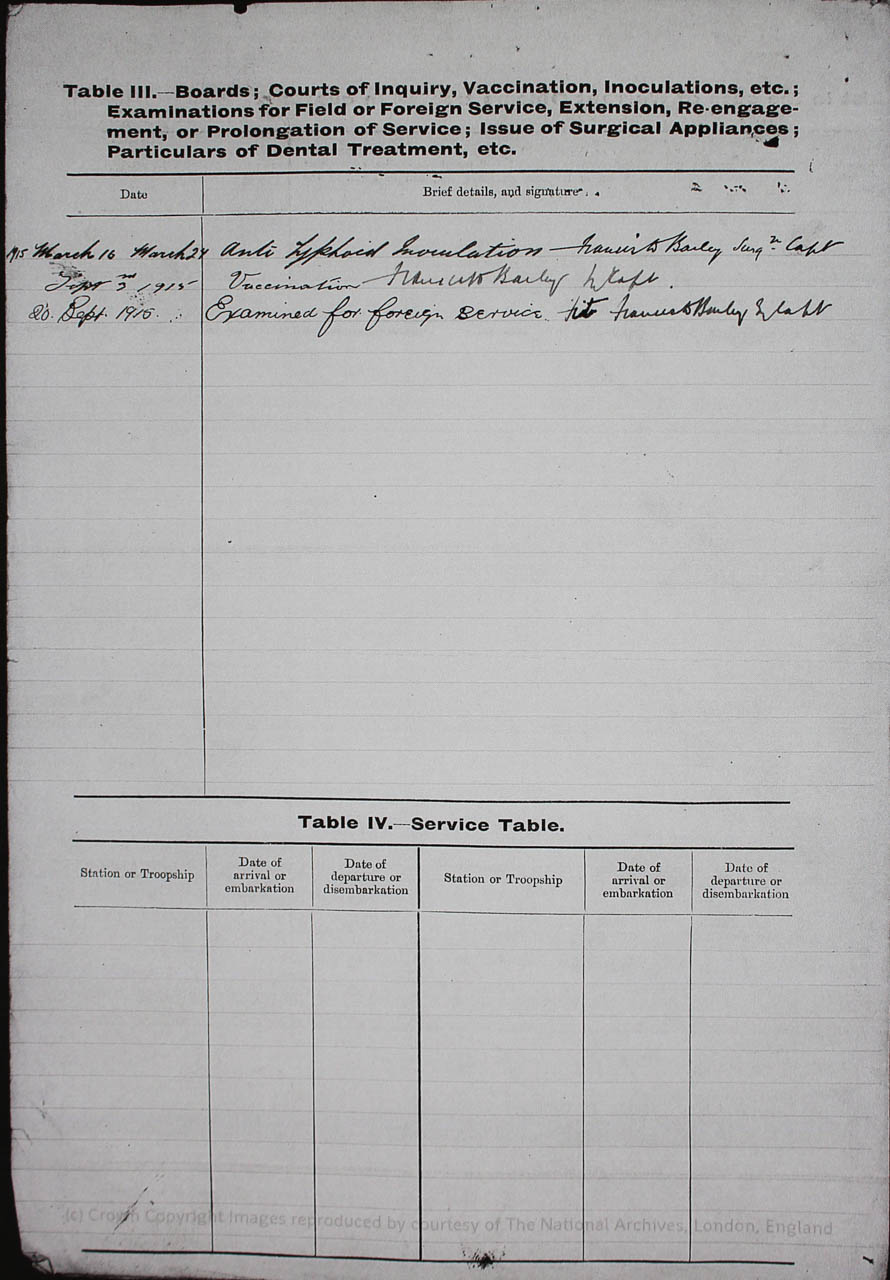 Table III.—Boards; Courts of Inquiry, Vaccination, Inoculations, etc.;
Examinations for Field or Foreign Service, Extension, Re-engage-
ment, or Prolongation of Service; Issue of Surgical Appliances;
Particulars of Dental Treatment, etc.
Date Brief details, and signature
1915 March 16 March 24 Anti Typhoid Inoculation — Francis D Bailey Surgn Capt
Sept 3rd 1915 Vaccination Francis D Bailey Capt.
20. Sept. 1915. Examined for foreign service. fit Francis D Bailey Capt
Table IV.—Service Table.
Station or Troopship Date of arrival or embarkation Date of departure or disembarkation Station or Troopship Date of arrival or embarkation Date of departure or disembarkation
(c) Crown Copyright Images reproduced by courtesy of The National Archives, London, England